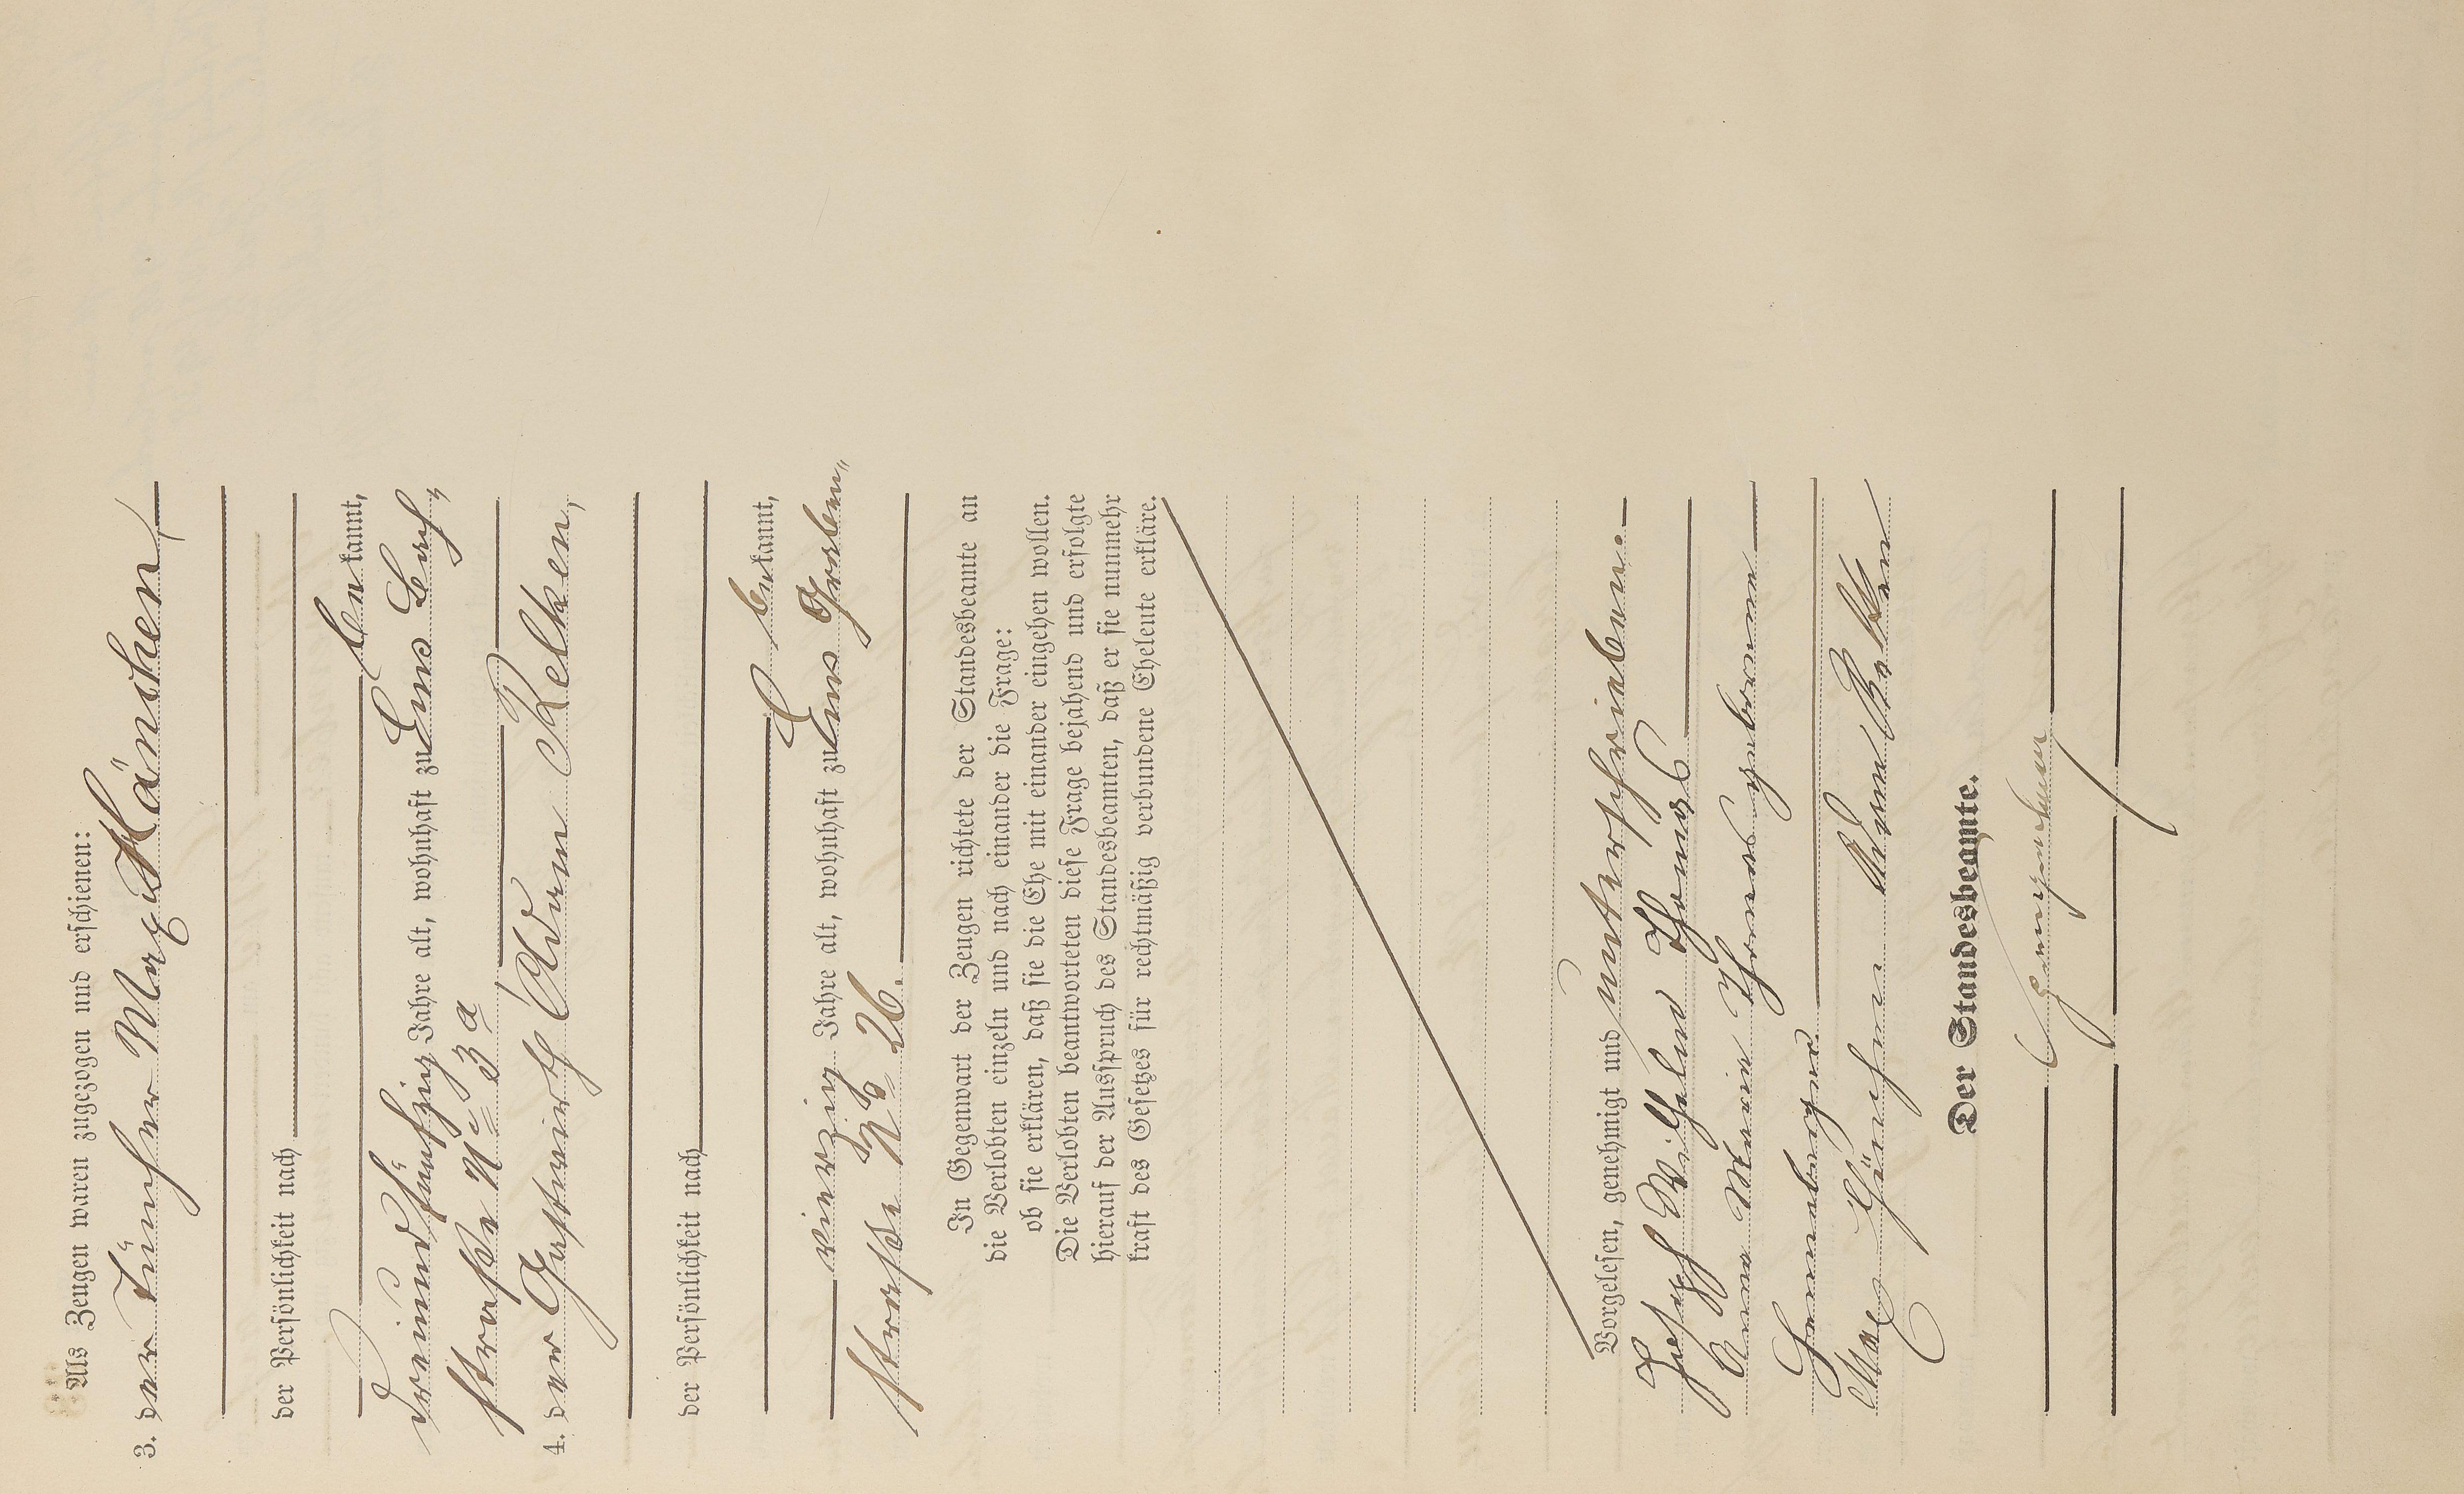 Als Zeugen waren zugezogen und erschienen:
3. der Tüncher Max Hänschen,
der Persönlichkeit nach
be kannt,
dreiundfünfzig Jahre alt, wohnhaft zu Ems Bach„
straße No 3 a
4. der Gastwirth Adam Kelken,
der Persönlichkeit nach
be kannt,
vierzig Jahre alt, wohnhaft zu Ems Graben„
straße No 26.
In Gegenwart der Zeugen richtete der Standesbeamte an
die Verlobten einzeln und nach einander die Frage:
ob sie erklären, daß sie die Ehe mit einander eingehen wollen.
Die Verlobten beantworteten diese Frage bejahend und erfolgte
hierauf der Ausspruch des Standesbeamten, daß er sie nunmehr
kraft des Gesetzes für rechtmäßig verbundene Eheleute erkläre.
Vorgelesen, genehmigt und unterschrieben.
Joseph Wilhelm Thomas
Anna Maria Thomas geborenen
Max Hänschen Adam Kelken
Der Standesbeamte.